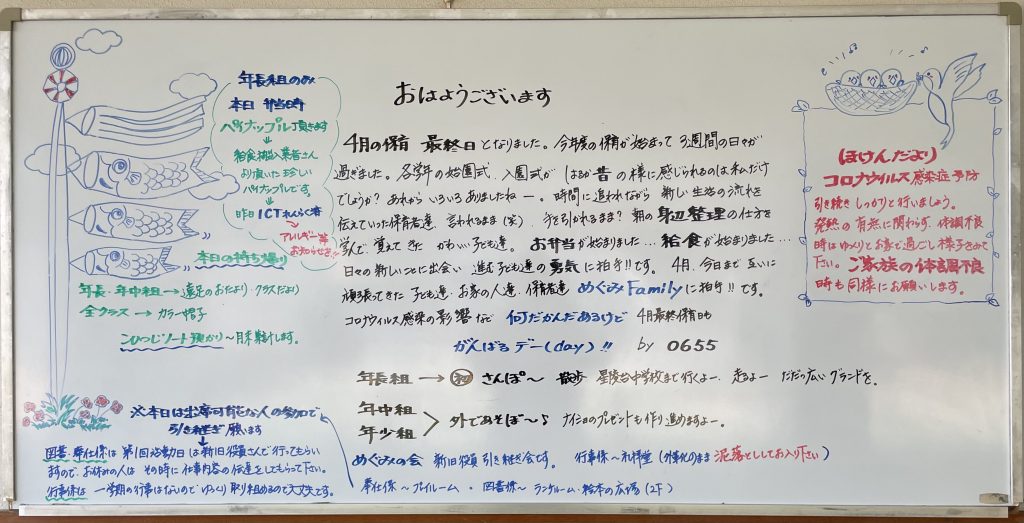 年長組のみ
本日 弁当時
パイナップル頂きます
給食搬入業者さん
より頂いた珍しい
パイナップルです。
昨日ICTれんらく者
アレルギー等
お知らせを!!
本日の持ち帰り
年長・年中組→遠足のおたより・クラスだより
全クラス→カラー帽子
こひつじノート預かり〜月末集計します。
※本日は出席可能な人の参加で
引き継ぎ願います
図書・奉仕係は 第1回活動日は新旧役員さんで行ってもらい
ますので、お休みの人は その時に仕事内容の伝達をしてもらって下さい。
行事係は 一学期の行事はないので ゆっくり取り組めるので大丈夫です。
おはようございます
4月の保育 最終日となりました。今年度の保育が始まって 3週間の日々が
過ぎました。各学年の始園式、入園式が はるか昔の様に感じられるのは私だけ
でしょうか?あれから いろいろありましたねー。時間に追われながら 新しい生活の流れを
伝えていった保育者達、言われるまま(笑) 手を引かれるまま? 朝の身辺整理の仕方を
学んで、覚えてきた かわいい子ども達。お弁当が始まりました…給食が始まりました…
日々の新しいことに出会い 進む子ども達の勇気に拍手!!です。4月、今日まで 互いに
頑張ってきた 子ども達、お家の人達、保育者達 めぐみFamilyに拍手!!です。
コロナウィルス感染の影響など 何だかんだあるけど 4月最終保育日も
がんばるデー(day)!! by 0655
年長組→初 さんぽ〜 散歩 星陵台中学校まで行くよー、走るよー だだっ広いグランドを。
年中組
年少組
外であそぼ〜♪ ナイショのプレゼントも作り進めますよー。
めぐみの会 新旧役員引き継ぎ会です。 行事係〜礼拝堂(外靴のまま 泥落としてお入り下さい)
奉仕係〜プレイルーム ・ 図書係〜ランチルーム・絵本の広場(2F)
ほけんだより
コロナウィルス感染症予防
引き続き しっかりと行いましょう。
発熱の有無に関わらず、体調不良
時は ゆっくりとお家で過ごし 様子をみて
下さい。ご家族の体調不良
時も同様にお願いします。